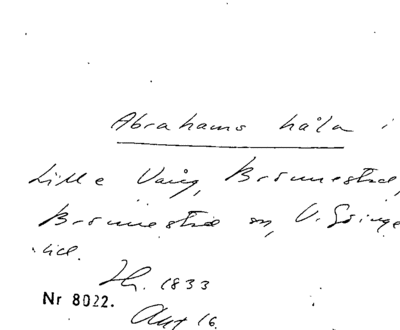 Abrahams håla i
Lille Vång, Brönnestad,
Brönnestad sn, V. Göinge
hd.
Fr. 1833
Nr 8022.
Aug 16.